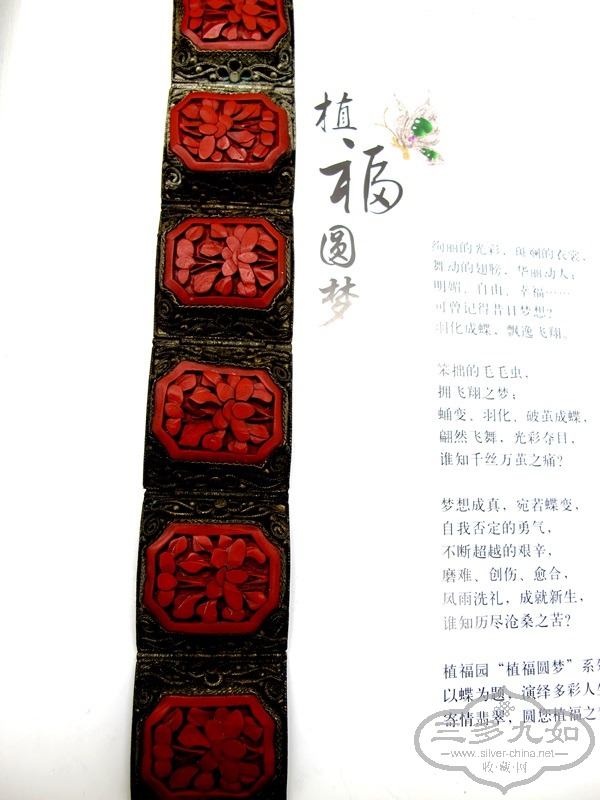 植福圆梦
绚丽的光彩，斑斓的衣裳，
舞动的翅膀，华丽动人；
明媚、自由、幸福……
可曾记得昔日梦想？
羽化成蝶，飘逸飞翔。
笨拙的毛毛虫，
拥飞翔之梦；
蛹变、羽化、破茧成蝶，
翩然飞舞，光彩夺目，
谁知千丝万茧之痛？
梦想成真，宛若蝶变，
自我否定的勇气，
不断超越的艰辛，
磨难、创伤、愈合，
风雨洗礼，成就新生，
谁知历尽沧桑之苦？
植福园“植福圆梦”系
以蝶为题，演绎多彩人
寄情翡翠，圆您植福之
三多九如
www.silver-china.net
收·藏·网